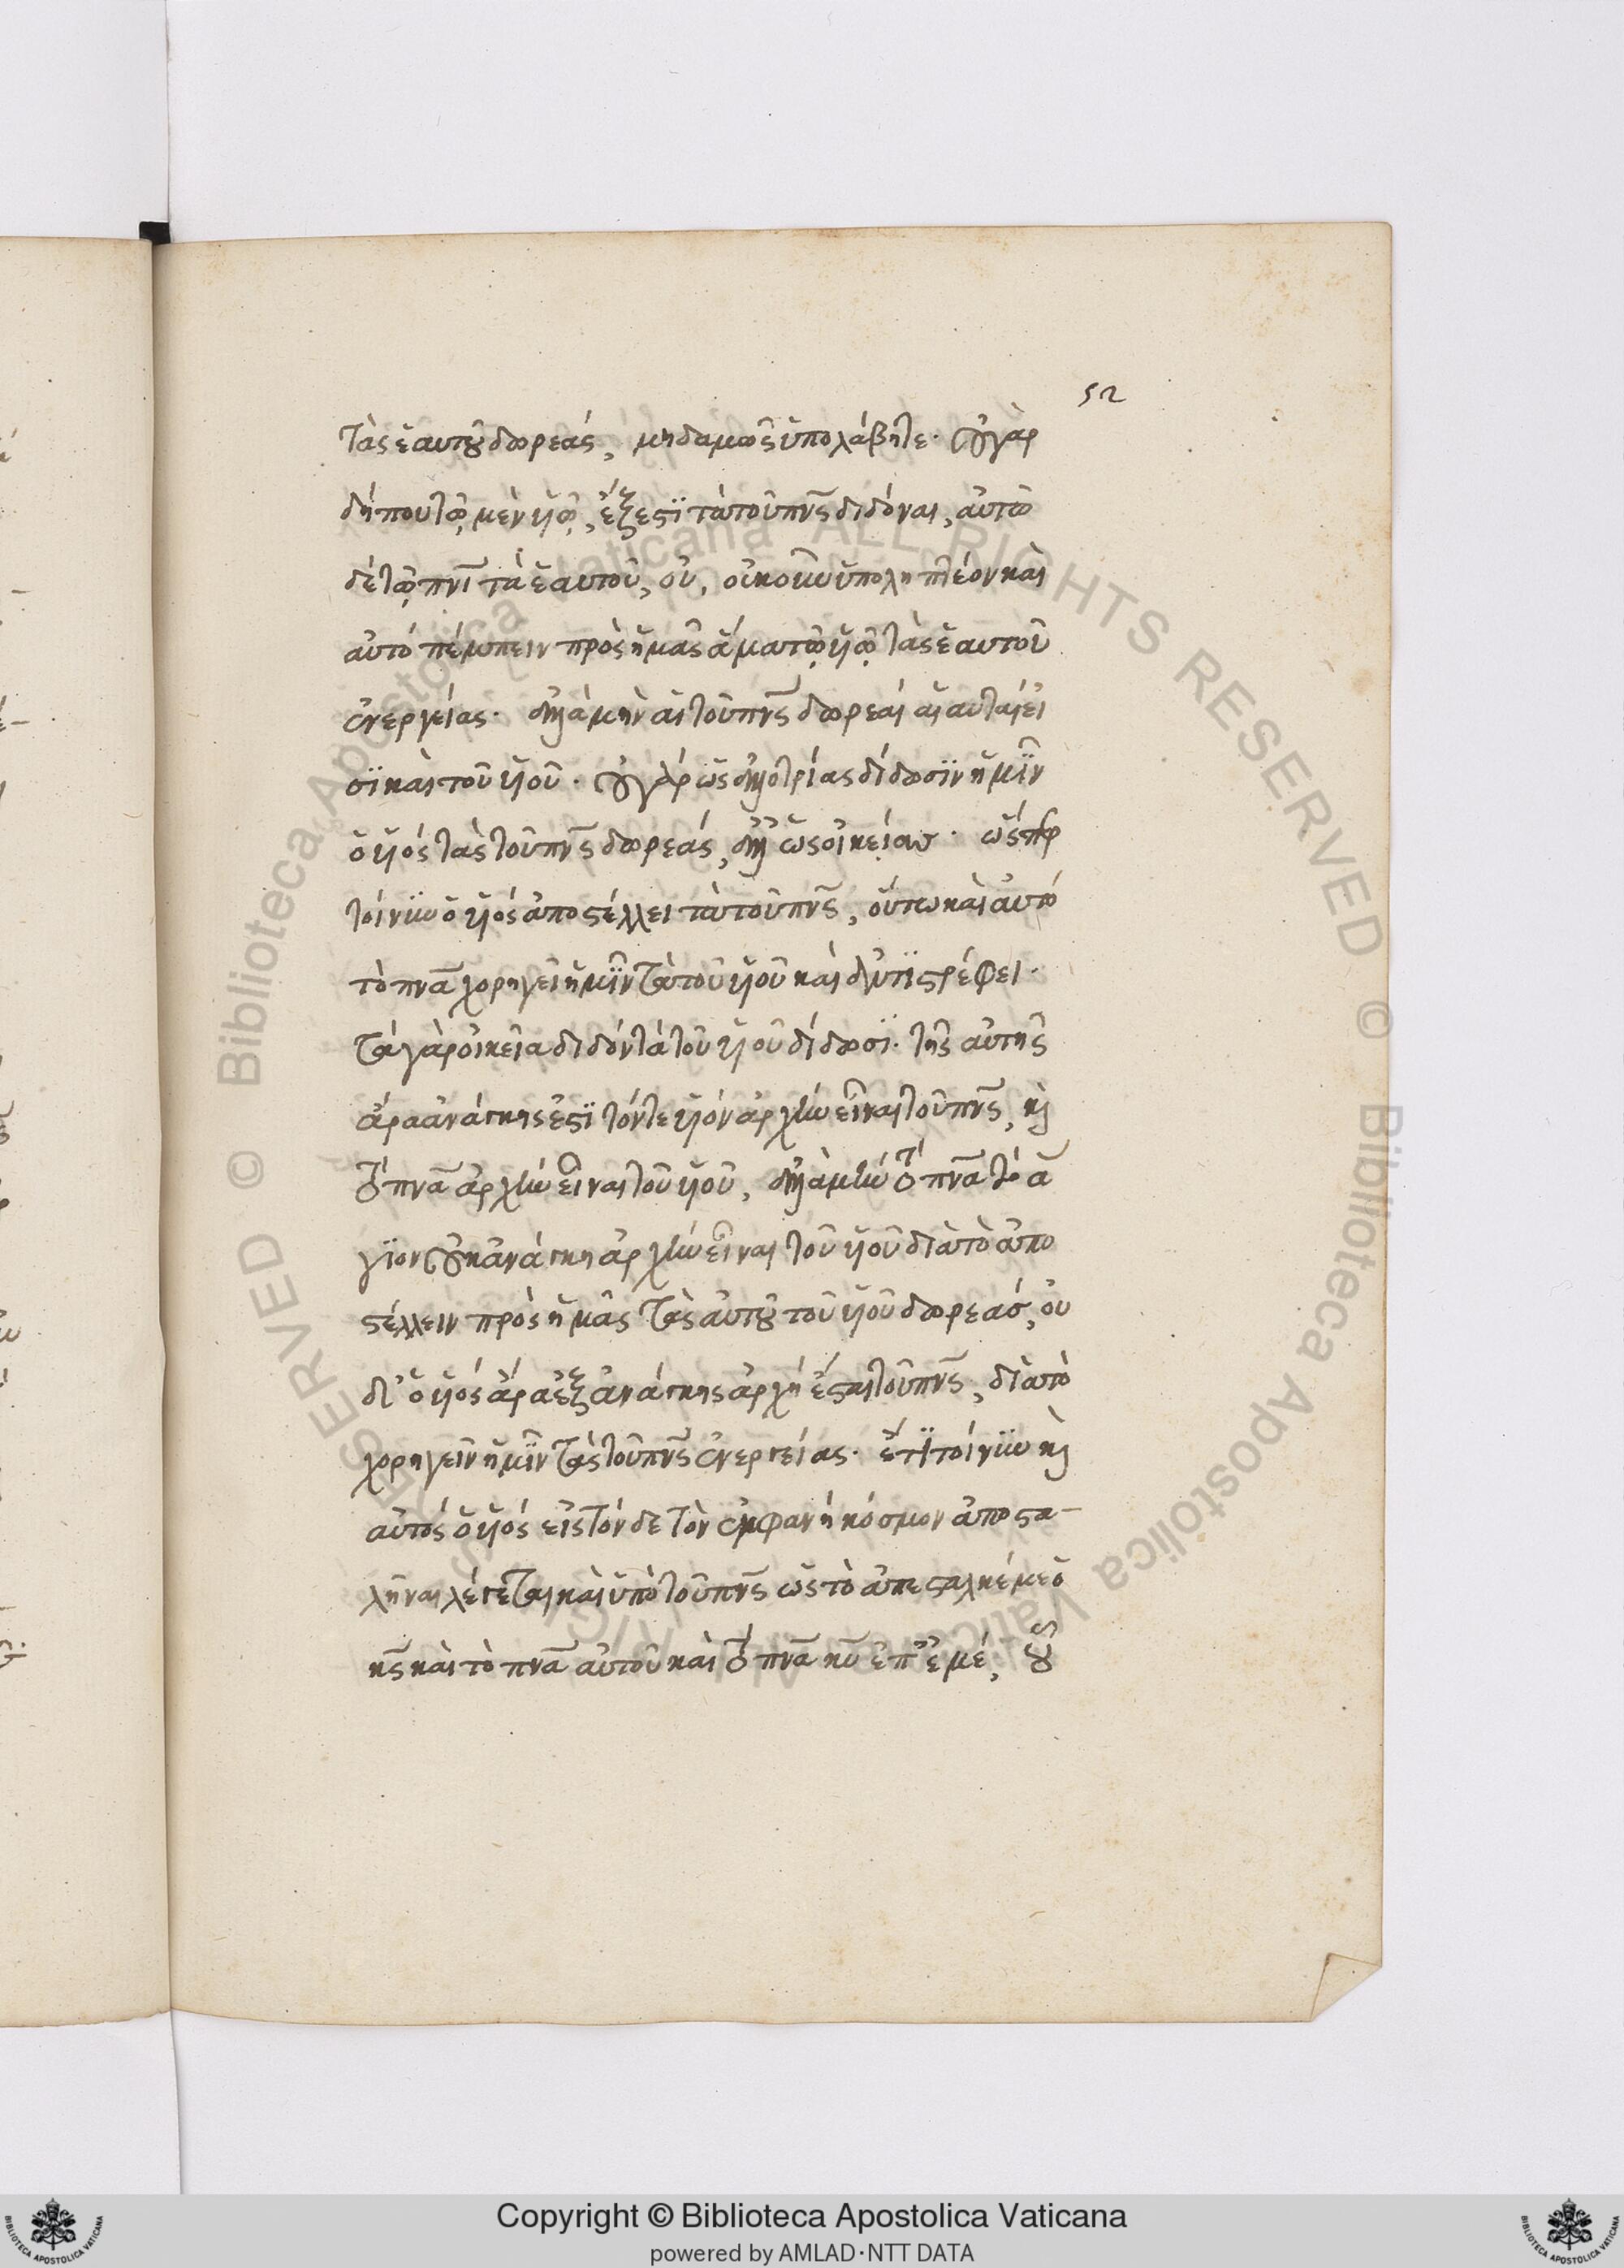 52
τὰς ἑαυτοῦ δωρεάς, μηδαμῶς ὑπολάβητε· οὐ γὰρ
δήπου τῷ μὲν υἱῷ, ἔξεστι τὰ τοῦ πνς διδόναι, αὐτῷ
δὲ τῷ πνι τὰ ἑαυτοῦ, οὐ, οὐκοῦν ὑποληπτέον καὶ
αὐτό πέμπειν πρὸς ἡμᾶς ἅμα τῷ υἱῷ τὰς ἑαυτοῦ
ἐνεργείας· ἀλλὰ μὴν αἱ τοῦ πνς δωρεαί αἱ αὐταί εἰ
σι καὶ τοῦ υἱοῦ· οὐ γὰρ ὡς ἀλλοτρίας δίδωσιν ἡμῖν
ὁ υἱός τὰς τοῦ πνς δωρεάς, ἀλλ' ὡς οἰκείας· ὥσπερ
τοίνυν ὁ υἱός ἀποστέλλει τὰ τοῦ πνς, οὕτω καὶ αὐτό
τὸ πνα χορηγεῖ ἡμῖν τὰ τοῦ υἱοῦ καὶ ἀντιστρέφει·
τὰ γὰρ οἰκεῖα διδόν τὰ τοῦ υἱοῦ δίδωσι· τῆς αὐτῆς
ἄρα ἀνάγκης ἐστι τόν τε υἱόν ἀρχὴν εἶναι τοῦ πνς, καὶ
τὸ πνα ἀρχὴν εἶναι τοῦ υἱοῦ, ἀλλὰ μὴν τὸ πνα τὸ ἅ
γιον οὐκ ἀνάγκη ἀρχὴν εἶναι τοῦ υἱοῦ διὰ τὸ ἀπο
στέλλειν πρὸς ἡμᾶς τὰς αὐτοῦ τοῦ υἱοῦ δωρεάς, οὐ
δ' ὁ υἱός ἄρα ἐξ ἀνάγκης ἀρχή ἔσται τοῦ πνς, διὰ τὸ
χορηγεῖν ἡμῖν τὰς τοῦ πνς ἐνεργείας· ἔτι τοίνυν καὶ
αὐτός ὁ υἱός εἰς τόνδε τὸν ἐμφανῆ κόσμον ἀποστα-
λῆναι λέγεται καὶ ὑπὸ τοῦ πνς ὡς τὸ ἀπέσταλκέ με ὁ
κς καὶ τὸ πνα αὐτοῦ καὶ τὸ πνα κυ ἐπ' ἐμέ, οὗ